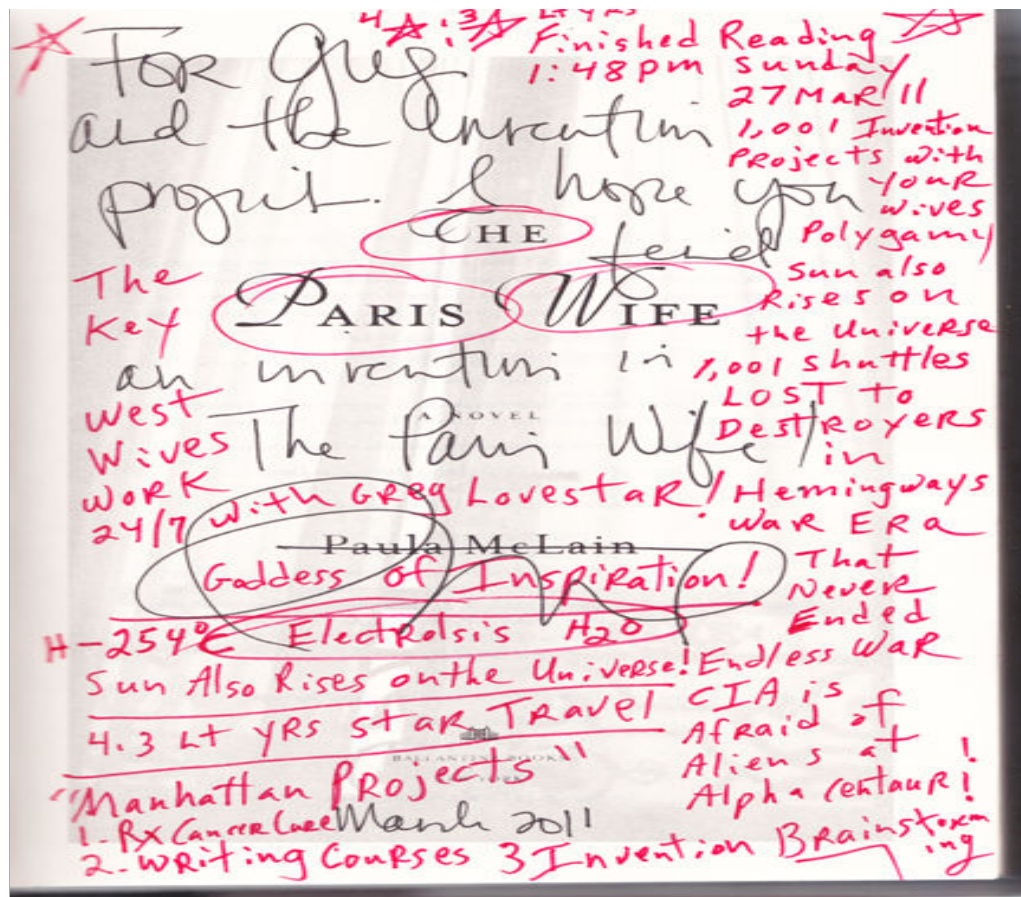 4 ☆ : 3 ☆ Lt yrs
Finished Reading
1:48pm Sunday
27 MAR 11
For Greg
and the invention
project. I hope you
find
an invention in
The Paris Wife!
THE
PARIS WIFE
A NOVEL
Paula McLain
BALLANTINE BOOKS
March 2011
1,001 Invention
PRojects with
YOUR
wives
Polygamy
Sun also
Rises on
the UniveRse
1,001 shuttles
LOST to
DestROYERS
in
Hemingways
WAR ERA
That
Never
Ended
Endless WAR
CIA is
Afraid of
Aliens at
Alpha CentauRi!
The
Key
West
Wives
WORK
24/7 with GReg LovestaR!
Goddess of InspiRation!
H -254°C ElectRolsis H2O
Sun Also Rises on the UniveRse!
4.3 Lt YRS staR TRavel
"Manhattan PRojects"
1. RX CanceR CuRe
2. WRiting CouRses 3 Invention BRainstoRming